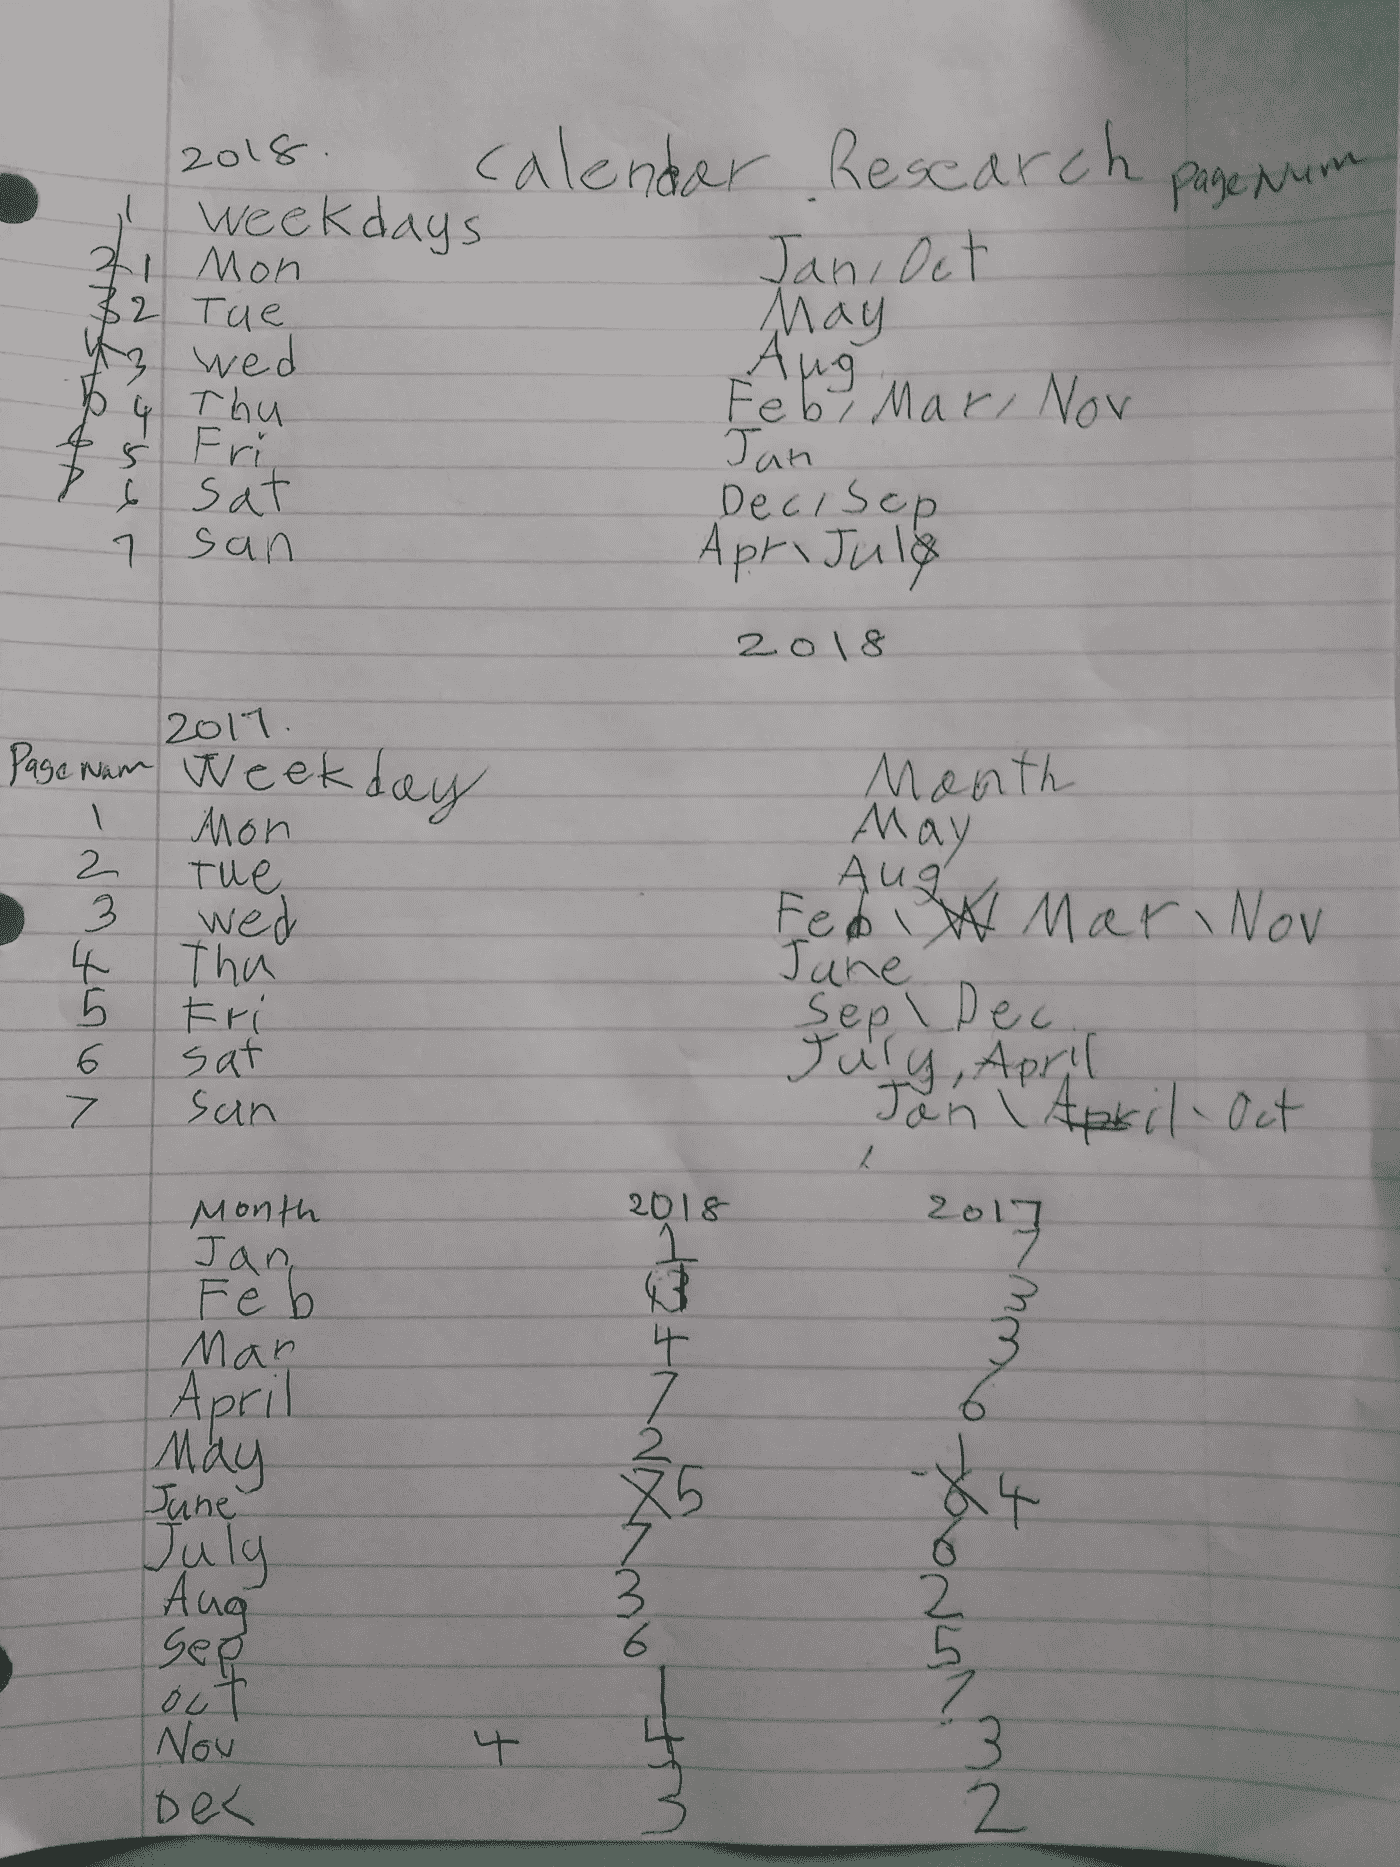 2018. Calendar Research Page Num
1 weekdays
2 1 Mon Jan, Oct
3 2 Tue May
4 3 wed Aug
5 4 Thu Feb, Mar, Nov
6 5 Fri Jan
7 6 Sat Dec, Sep
7 Sun Apr \ Jul
2018
2017.
Page Num Weekday Month
1 Mon May
2 TUE Aug
3 wed Feb \ Mar \ Nov
4 Thu June
5 Fri Sep \ Dec
6 Sat July, April
7 Sun Jan \ April \ Oct
Month 2018 2017
Jan 1 7
Feb 3
Mar 4 3
April 7 6
May 2 1
June 7 5 6 4
July 7 6
Aug 3 2
Sep 6 5
Oct 1 7
Nov 4 4 3
Dec 3 2